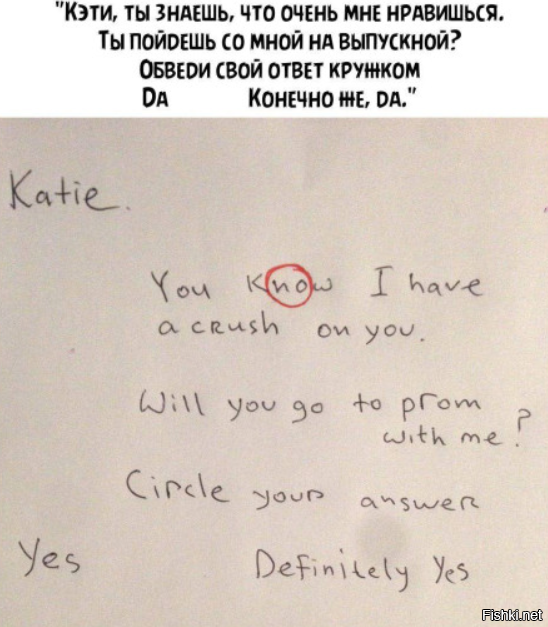 "Кэти, ты знаешь, что очень мне нравишься.
Ты пойдешь со мной на выпускной?
Обведи свой ответ кружком
Да Конечно же, да."
Katie.
You know I have
a crush on you.
Will you go to prom
with me?
Circle your answer
Yes Definitely Yes
Fishki.net